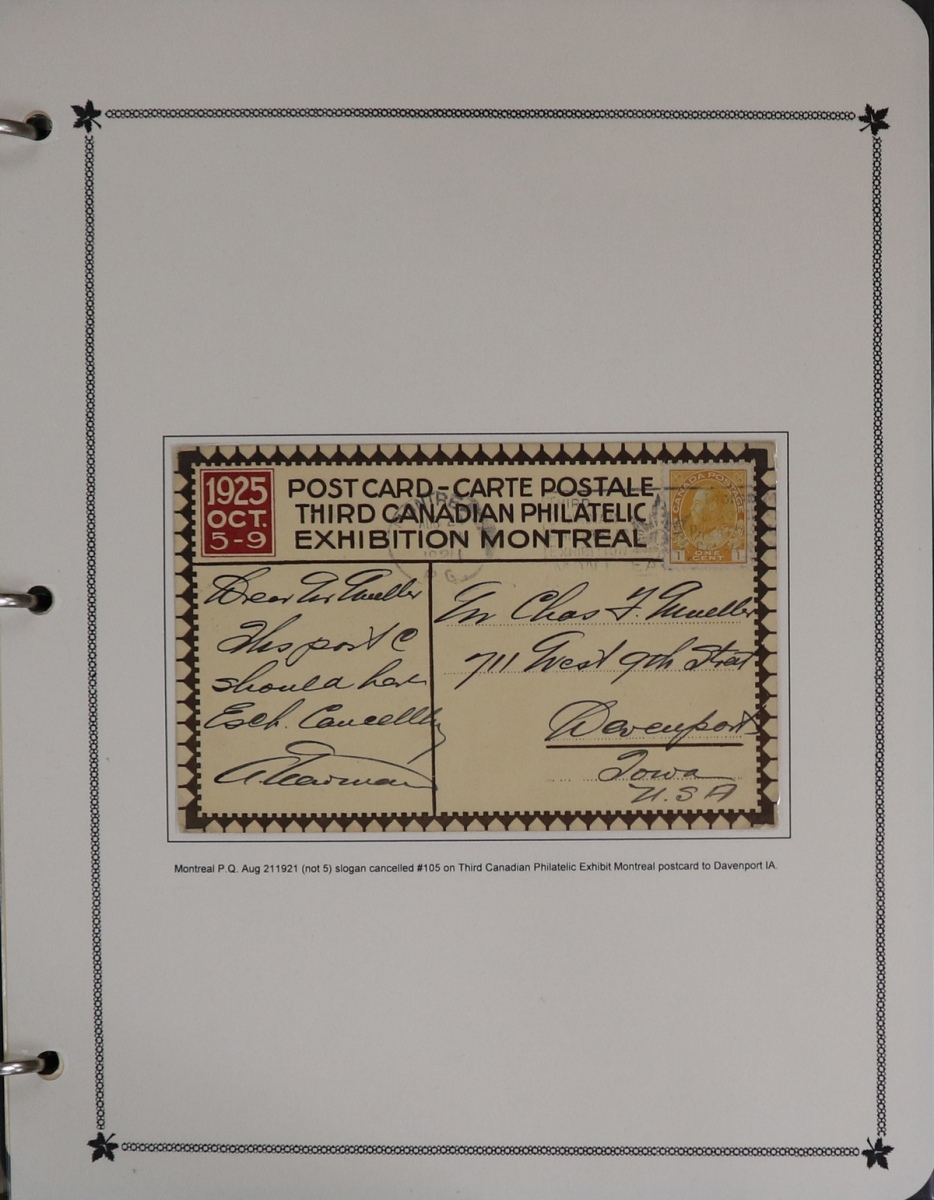 1925
OCT.
5-9
POST CARD - CARTE POSTALE
THIRD CANADIAN PHILATELIC
EXHIBITION MONTREAL
MONTREAL
P.Q.
THIRD
CANADA POSTAGE
1 ONE CENT 1
Dear Mr Mueller
This post C
should have
Exh. Cancellg
Mr Chas F. Mueller
711 West 9th Street
Davenport
Iowa
U.S.A
Montreal P.Q. Aug 211921 (not 5) slogan cancelled #105 on Third Canadian Philatelic Exhibit Montreal postcard to Davenport IA.